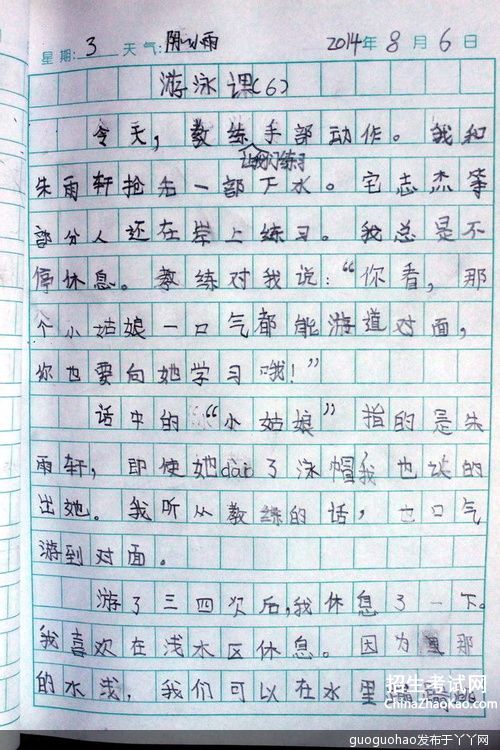 星期:3 天气:阴小雨 2014年8月6日
游泳课(6)
今天,教练手部动作。我和
让我们练习
朱雨轩抢先一部下水。宅志杰等
部分人还在岸上练习。我总是不
停休息。教练对我说:“你看,那
个小姑娘一口气都能游道对面,
你也要向她学习哦!”
话中的“小姑娘”指的是朱
雨轩,即使她dai了泳帽我也认的
出她。我听从教练的话,一口气
游到对面。
游了三四次后,我休息了一下。
我喜欢在浅水区休息。因为那
的水浅,我们可以在水里
招生考试网
ChinaZhaoKao.com
guoguohao发布于丫丫网